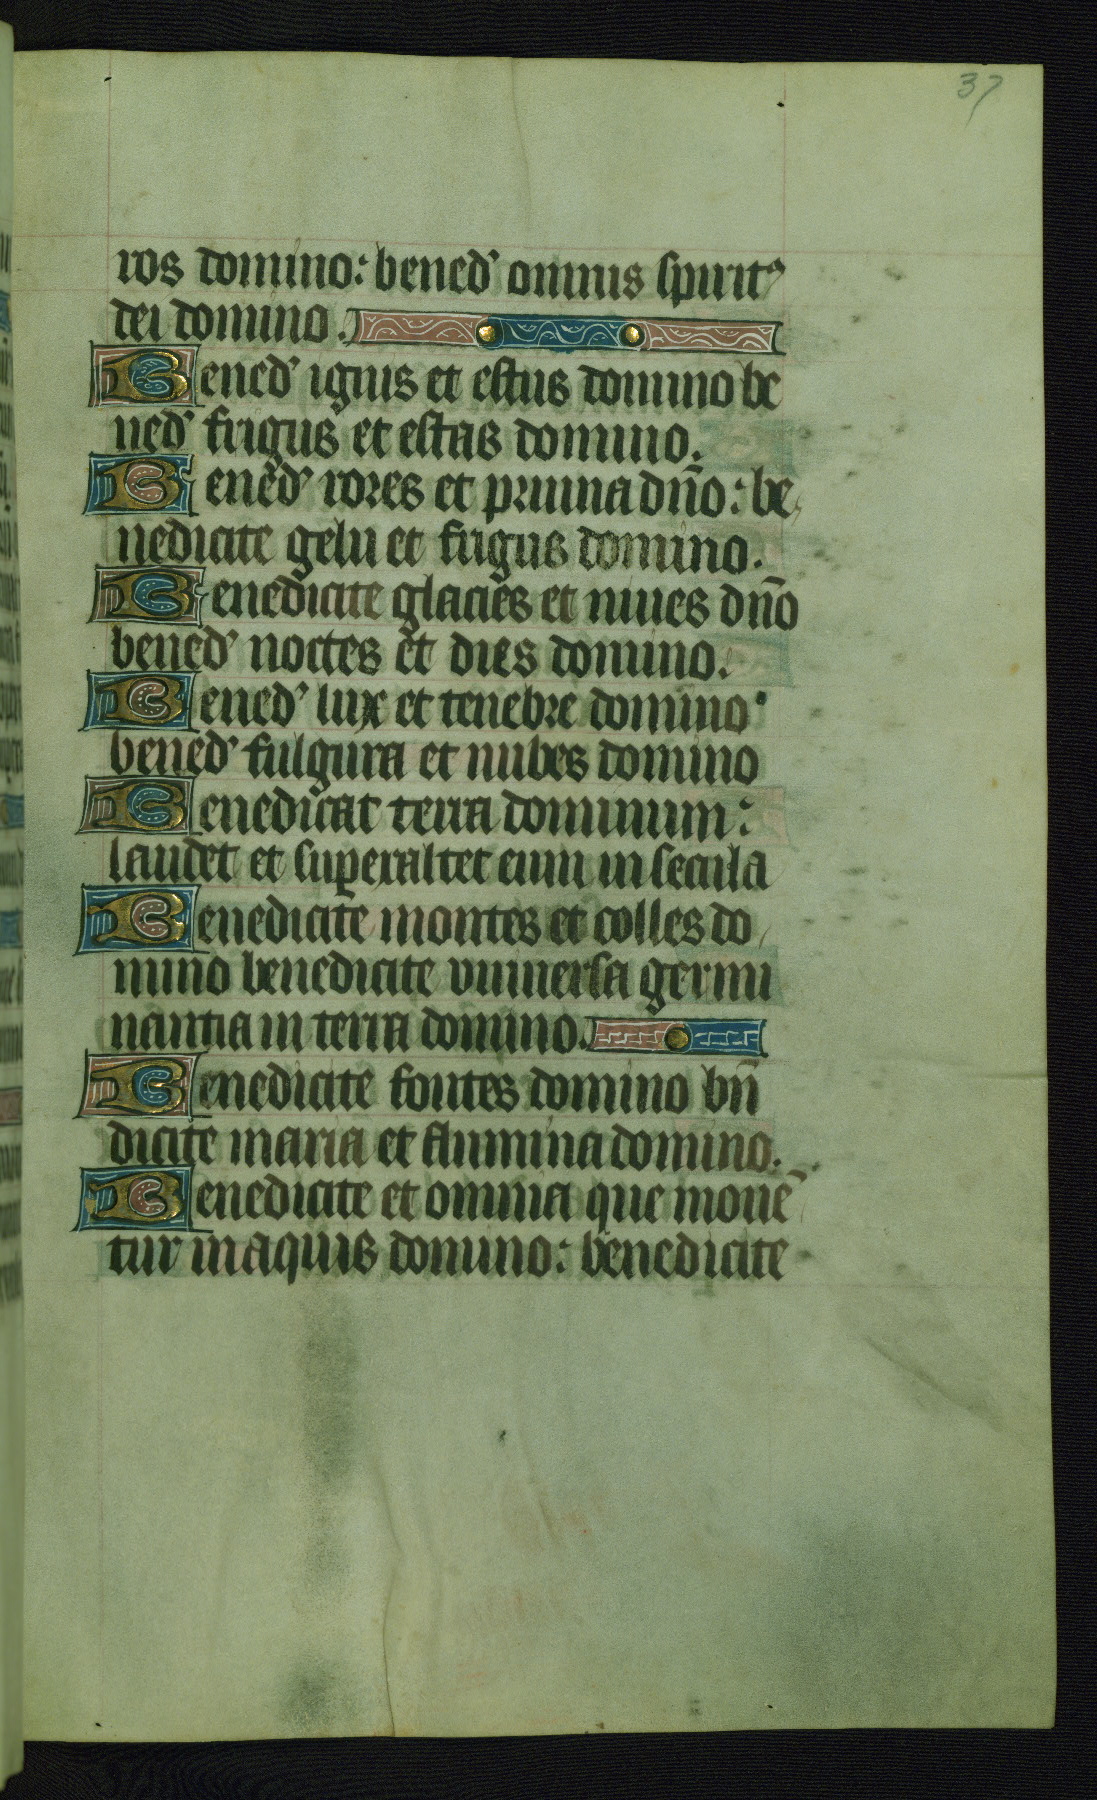 37
ros domino: bened' omnis spirit9
dei domino.
Bened' ignis et estus domino be
ned' frigus et estas domino.
Bened' rores et pruina dño: be
nedicite gelu et frigus domino.
Benedicite glacies et niues dño
bened' noctes et dies domino.
Bened' lux et tenebre domino
bened' fulgura et nubes domino
Benedicat terra dominum:
laudet et superaltet eum in secula
Benedicite montes et colles do
mino benedicite uniuersa germi
nantia in terra domino.
Benedicite fontes domino bñ
dicite maria et flumina domino.
Benedicite et omnia que mouẽ
tur in aquis domino: benedicite